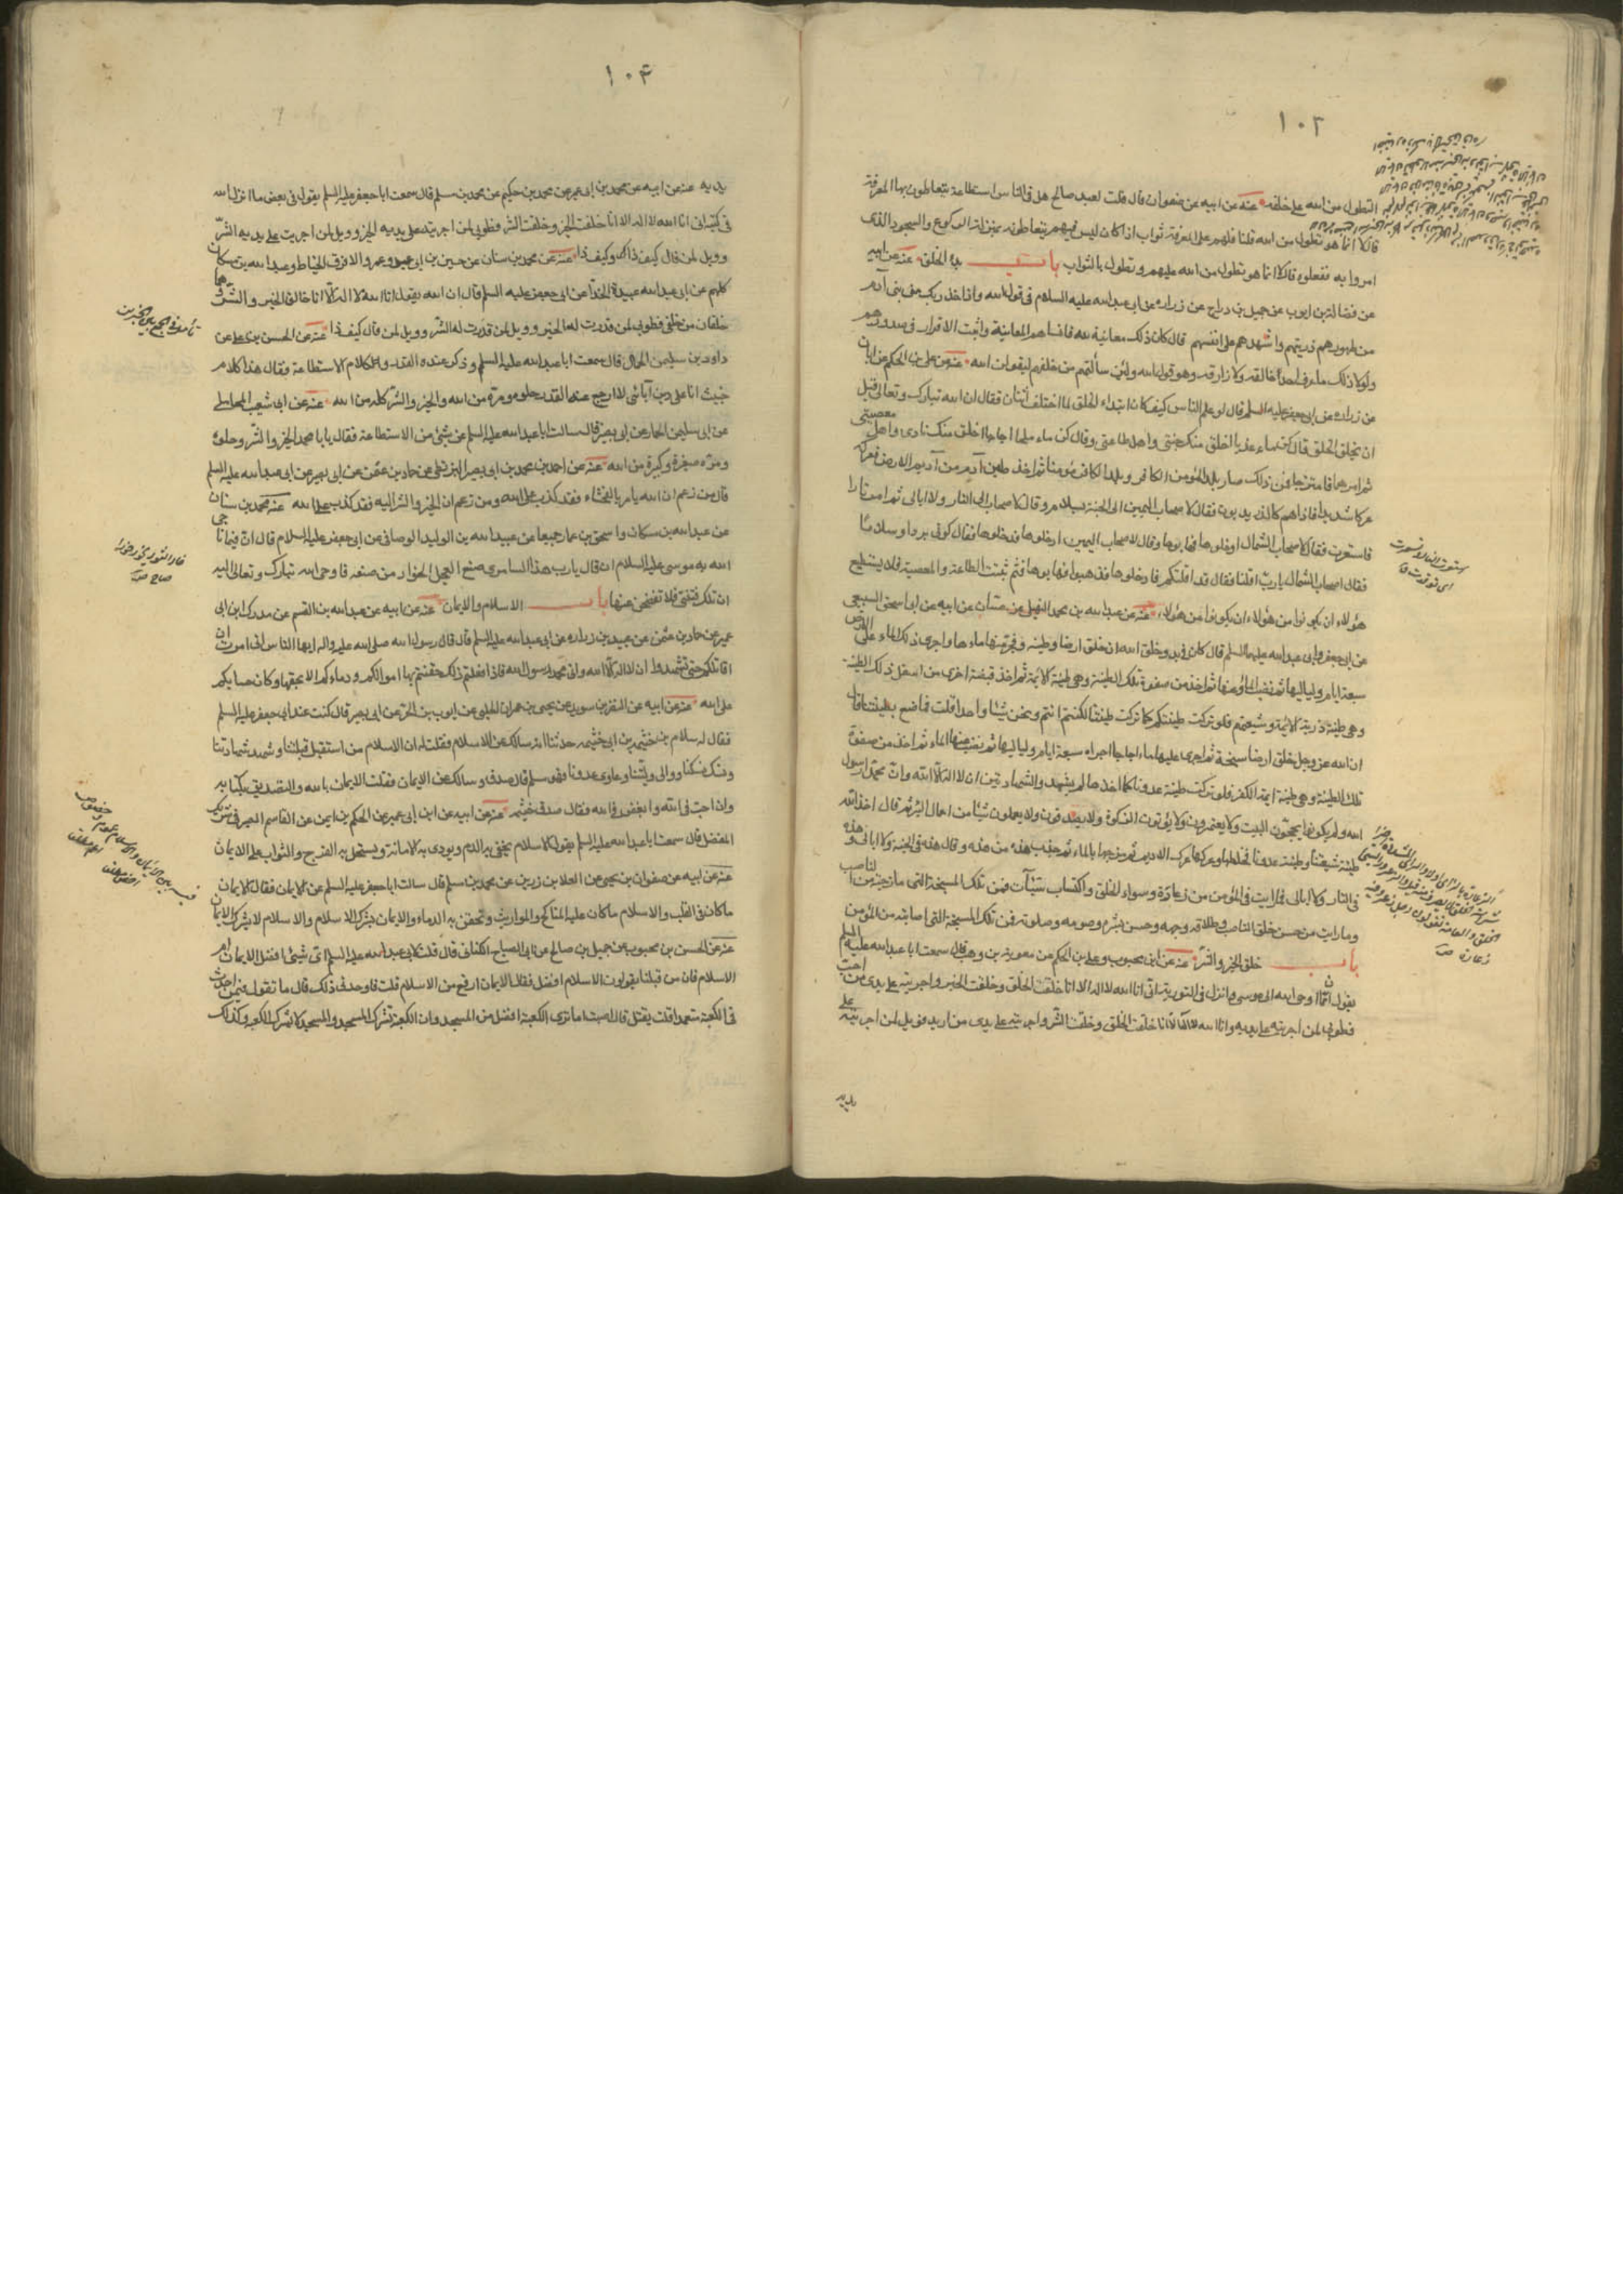 ١٠٣
التطول من الله على خلقه عنه عن ابيه عن صفوان قال قلت لعبد صالح هل فى الناس استطاعة يتعاطون بها المعرفة
قال لا انما هو تطول من الله قلنا فلهم على المعرفة ثواب اذا كان ليس فيهم ما يتعاطونه بمنزلة الركوع والسجود الذى
امروا به ففعلوه قال لا انما هو تطول من الله عليهم وتطول بالثواب باب بدء الخلق عنه عن ابيه
عن فضالة بن ايوب عن جميل بن دراج عن زرارة عن ابى عبد الله عليه السلام فى قول الله واذ اخذ ربك من بنى آدم
من ظهورهم ذريتهم واشهدهم على انفسهم قال كان ذلك معاينة لله فانساهم المعاينة واثبت الاقرار فى صدورهم
ولولا ذلك ما عرف احد خالقه ولا رازقه وهو قول الله ولئن سألتهم من خلقهم ليقولن الله عنه عن على بن الحكم عن ابان
عن زرارة عن ابى جعفر عليه السلم قال لو علم الناس كيف كان ابتداء الخلق لما اختلف اثنان فقال ان الله تبارك وتعالى قبل
ان يخلق الخلق قال كن ماء عذبا اخلق منك جنتى واهل طاعتى وقال كن ماء ملحا اجاجا اخلق منك نارى واهل معصيتى
ثم امرهما فامتزجا فمن ذلك صار يلد المؤمن الكافر ويلد الكافر مؤمنا ثم اخذ طين آدم من اديم الارض فعركه
عركا شديدا فاذا هم كالذر يدبون فقال لاصحاب اليمين الى الجنة بسلام وقال لاصحاب الى النار ولا ابالى ثم امر نارا
فاستعرت فقال لاصحاب الشمال ادخلوها فهابوها وقال لاصحاب اليمين ادخلوها فدخلوها فقال كونى بردا وسلاما
فقال اصحاب الشمال يا رب اقلنا فقال قد اقلتكم فادخلوها فذهبوا فهابوها فثم ثبتت الطاعة والمعصية فلا يستطيع
هؤلاء ان يكونوا من هؤلاء ان يكونوا من هؤلاء عنه عن عبد الله بن محمد النهيكى عن حسان عن ابيه عن ابى اسحق السبيعى
عن ابى جعفر وابى عبد الله عليهما السلم قال كان فى بدو خلق الله ان خلق ارضا وطينة وفجر منها ماءها واجرى ذلك الماء على الارض
سبعة ايام ولياليها ثم نضب الماء عنها ثم اخذ من صفوة تلك الطينة وهى طينة الائمة ثم اخذ قبضة اخرى من اسفل ذلك الطينة
وهى طينة ذرية الائمة وشيعتهم فلو تركت طينتكم كما تركت طينتنا لكنتم انتم ونحن شيئا واحدا قلت فما صنع بطينتنا قال
ان الله عز وجل خلق ارضا سبخة ثم اجرى عليها ماء اجاجا اجراه سبعة ايام ولياليها ثم نضب عنها الماء ثم اخذ من صفوة
تلك الطينة وهى طينة ايمة الكفر فلو تركت طينة عدونا كما اخذها لم يشهدوا الشهادتين ان لا اله الا الله وان محمدا رسول
الله ولم يكونوا يحجون البيت ولا يعتمرون ولا يؤتون الزكوة ولا يصدقون ولا يعملون شيئا من اعمال البر ثم قال اخذ الله
طينة شيعتنا وطينة عدونا فخلطهما وعركهما عرك الاديم ثم مزجهما بالماء ثم جذب هذه من هذه وقال هذه فى الجنة ولا ابالى وهذه
فى النار ولا ابالى فما رايت فى المؤمن من زعارة وسوء الخلق واكتساب سيئآت فمن تلك السبخة التى مازجته من الناصب
وما رايت من حسن خلق الناصب وطلاقة وجهه وحسن بشره وصومه وصلوته فمن تلك السبخة التى اصابته من المؤمن
باب خلق الخير والشر عنه عن ابن محبوب وعلى بن الحكم عن معوية بن وهب قال سمعت ابا عبد الله عليه السلم
يقول ان مما اوحى الله الى موسى وانزل فى التورية انى انا الله لا اله الا انا خلقت الخلق وخلقت الخير واجريته على يدى من احب
فطوبى لمن اجريته على يديه وانا الله لا اله الا انا خلقت الخلق وخلقت الشر واجريته على يدى من اريد فويل لمن اجريته على
يديه
استعرت النار وتسعرت
اى توقدت
١٠٤
يديه عنه عن ابيه عن محمد بن ابى عمير عن محمد بن حكيم عن محمد بن مسلم قال سمعت ابا جعفر عليه السلم يقول فى بعض ما انزل الله
فى كتبه انى انا الله لا اله الا انا خلقت الخير وخلقت الشر فطوبى لمن اجريت على يديه الخير وويل لمن اجريت على يديه الشر
وويل لمن قال كيف ذا وكيف ذا عنه عن محمد بن سنان عن حسين بن ابى عبيد وعمرو الافرق الخياط وعبد الله بن مسكان
كلهم عن ابى عبيدة الحذاء عن ابى جعفر عليه السلم قال ان الله يقول انا الله لا اله الا انا خالق الخير والشر وهما
خلقان من خلقى فطوبى لمن قدرت له الخير وويل لمن قدرت له الشر وويل لمن قال كيف ذا عنه عن الحسن بن على عن
داود بن سليمن الجمال قال سمعت ابا عبد الله عليه السلم وذكر عنده القدر وكلام الاستطاعة فقال هذا كلام
خبيث انا على دين آبائى لا ارجع عنه القدر حلوه ومره من الله والخير والشر كله من الله عنه عن ابى شعيب المحاملى
عن ابى سليمن الحمار عن ابى بصير قال سالت ابا عبد الله عليه السلم عن شئ من الاستطاعة فقال يا با محمد الخير والشر وحلوه
ومره صغيره وكبيره من الله عنه عن احمد بن محمد بن ابى نصر البزنطى عن حماد بن عثمن عن ابى بصير عن ابى عبد الله عليه السلم
قال من زعم ان الله يامر بالفحشاء فقد كذب على الله ومن زعم ان الخير والشر اليه فقد كذب على الله عنه محمد بن سنان
عن عبد الله بن مسكان واسحق بن عمار جميعا عن عبيد الله بن الوليد الوصافى عن ابى جعفر عليه السلام قال ان فيما ناجى
الله به موسى عليه السلام ان قال يا رب هذا السامرى صنع العجل الخوار من صنعه فاوحى الله تبارك وتعالى اليه
ان تلك فتنتى فلا تفصحن عنها باب الاسلام والايمان عنه عن ابيه عن عبد الله بن القسم عن مدرك ابن ابى
عمير عن حماد بن عثمن عن عبيد بن زرارة عن ابى عبد الله عليه السلم قال قال رسول الله صلى الله عليه واله ايها الناس انى امرت ان
اقاتلكم حتى تشهدوا ان لا اله الا الله وانى محمد رسول الله فاذا فعلتم ذلك حقنتم بها اموالكم ودماءكم الا بحقها وكان حسابكم
على الله عنه عن ابيه عن النضر بن سويد عن يحيى بن عمران الحلبى عن ايوب بن الحر عن ابى بصير قال كنت عند ابى جعفر عليه السلم
فقال له سلام بن خثيمه بن ابى خثيمه حدثنا انه سالك عن الاسلام فقلت له ان الاسلام من استقبل قبلتنا وشهد شهادتنا
ونسك نسكنا ووالى ولينا وعادى عدونا فهو مسلم قال صدق وسالك عن الايمان فقلت الايمان بالله والتصديق بكتابه
وان احب فى الله وابغض فى الله فقال صدق خثيمه عنه عن ابيه عن ابن ابى عمير عن الحكم بن ايمن عن القاسم الصيرفى شريك
المفضل قال سمعت ابا عبد الله عليه السلم يقول الاسلام يحقن به الدم ويودى به الامانة ويستحل به الفرج والثواب على الايمان
عنه عن ابيه عن صفوان بن يحيى عن العلا بن رزين عن محمد بن مسلم قال سالت ابا جعفر عليه السلم عن الايمان فقال الايمان
ما كان فى القلب والاسلام ما كان عليه المناكح والمواريث وتحقن به الدماء والايمان يشرك الاسلام والاسلام لا يشرك الايمان
عنه عن الحسن بن محبوب عن جميل بن صالح عن ابى الصباح الكنانى قال قلت لابى عبد الله عليه السلم اى شئ افضل الايمان ام
الاسلام فان من قبلنا يقولون الاسلام افضل فقال الايمان ارفع من الاسلام قلت فاوجدنى ذلك قال ما تقول فيمن احدث
فى الكعبة متعمدا قلت يقتل قال اصبت اما ترى الكعبة افضل من المسجد وان الكعبة تشرك المسجد والمسجد لا يشرك الكعبة وكذلك
خار الثور يخور خوارا
صاح